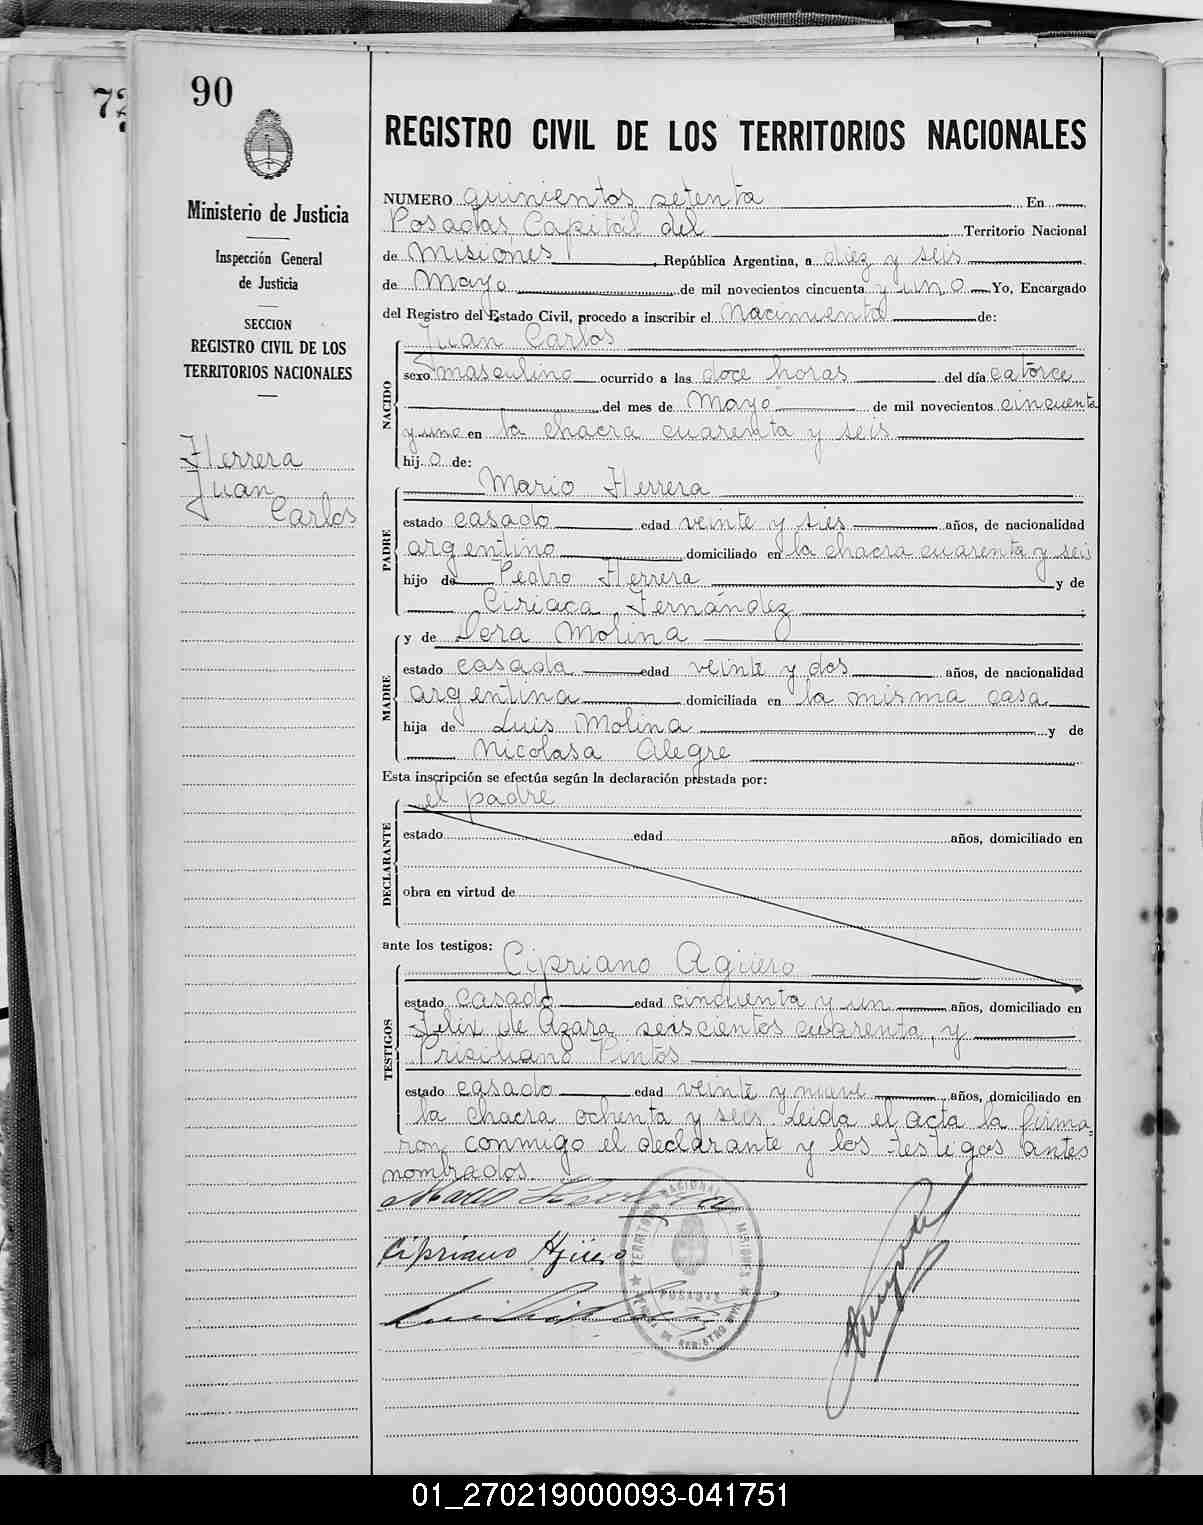 90
72
Ministerio de Justicia
Inspección General
de Justicia
SECCION
REGISTRO CIVIL DE LOS
TERRITORIOS NACIONALES
Herrera
Juan
Carlos
REGISTRO CIVIL DE LOS TERRITORIOS NACIONALES
NUMERO quinientos setenta En
Posadas, Capital del Territorio Nacional
de Misiones, República Argentina, a diez y seis
de Mayo de mil novecientos cincuenta y uno Yo, Encargado
del Registro del Estado Civil, procedo a inscribir el nacimiento de:
NACIDO
Juan Carlos
sexo masculino ocurrido a las doce horas del día catorce
del mes de Mayo de mil novecientos cincuenta
y uno en la chacra cuarenta y seis
hijo de:
PADRE
Mario Herrera
estado casado edad veinte y tres años, de nacionalidad
argentino domiciliado en la chacra cuarenta y seis
hijo de Pedro Herrera y de
Ciriaca Fernández
MADRE
y de Dora Molina
estado casada edad veinte y dos años, de nacionalidad
argentina domiciliada en la misma casa
hija de Luis Molina y de
Nicolasa Alegre
Esta inscripción se efectúa según la declaración prestada por:
DECLARANTE
el padre
estado edad años, domiciliado en
obra en virtud de
ante los testigos:
TESTIGOS
Cipriano Agüero
estado casado edad cincuenta y un años, domiciliado en
Felix de Azara seiscientos cuarenta, y
Prisiliano Pintos
estado casado edad veinte y nueve años, domiciliado en
la chacra ochenta y seis. Leida el acta la firma-
ron conmigo el declarante y los testigos antes
nombrados.
Mario Herrera
Cipriano Agüero
TERRITORIO NACIONAL MISIONES
POSADAS
DE REGISTRO CIVIL
01_270219000093-041751